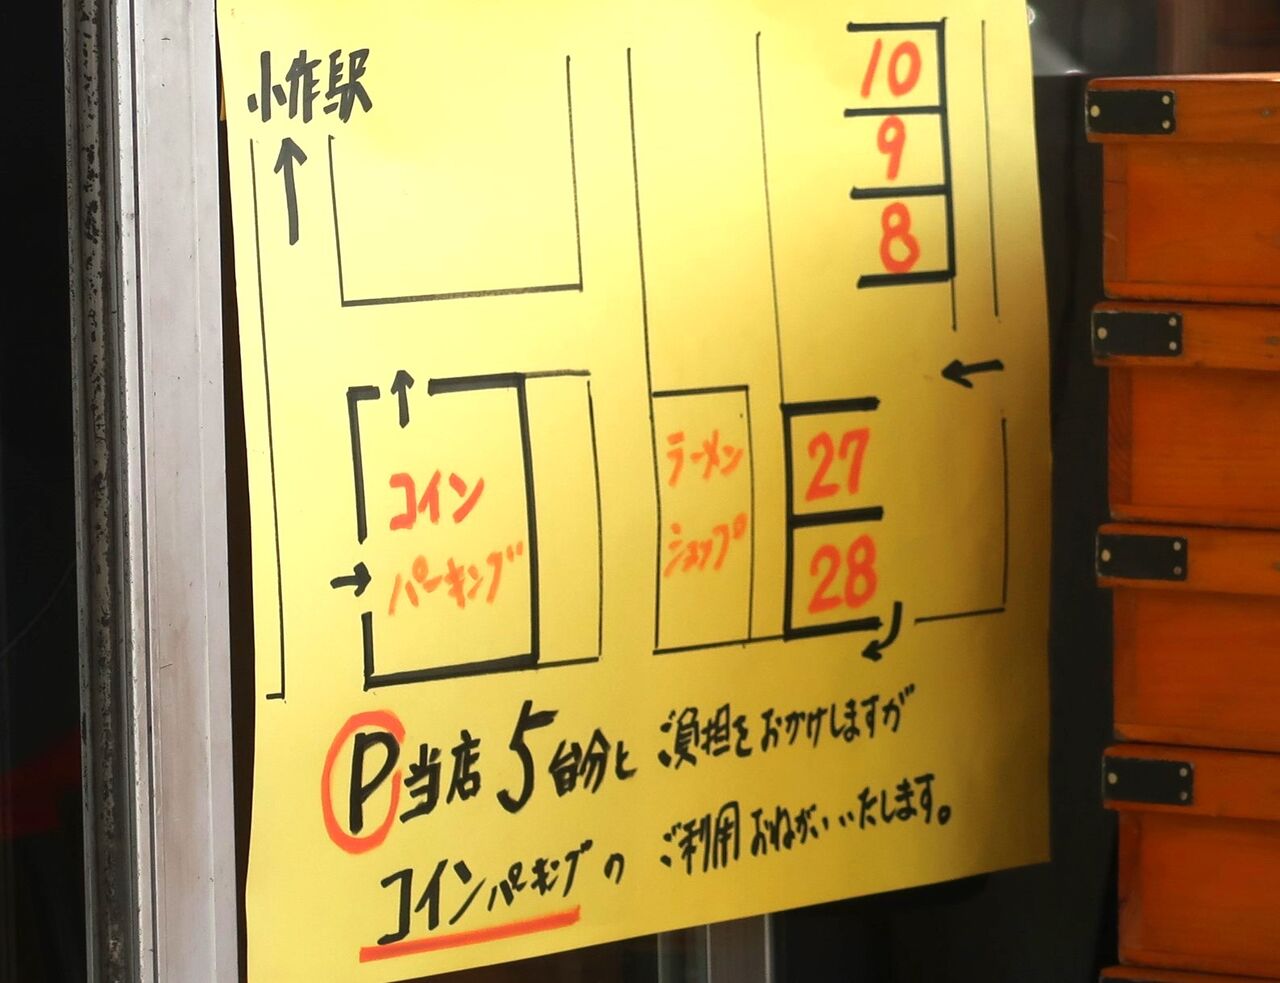 小作駅
10
9
8
27
28
コイン
パーキング
ラーメン
ショップ
P当店5台分と ご負担をおかけしますが
コインパーキングの ご利用おねがいいたします。